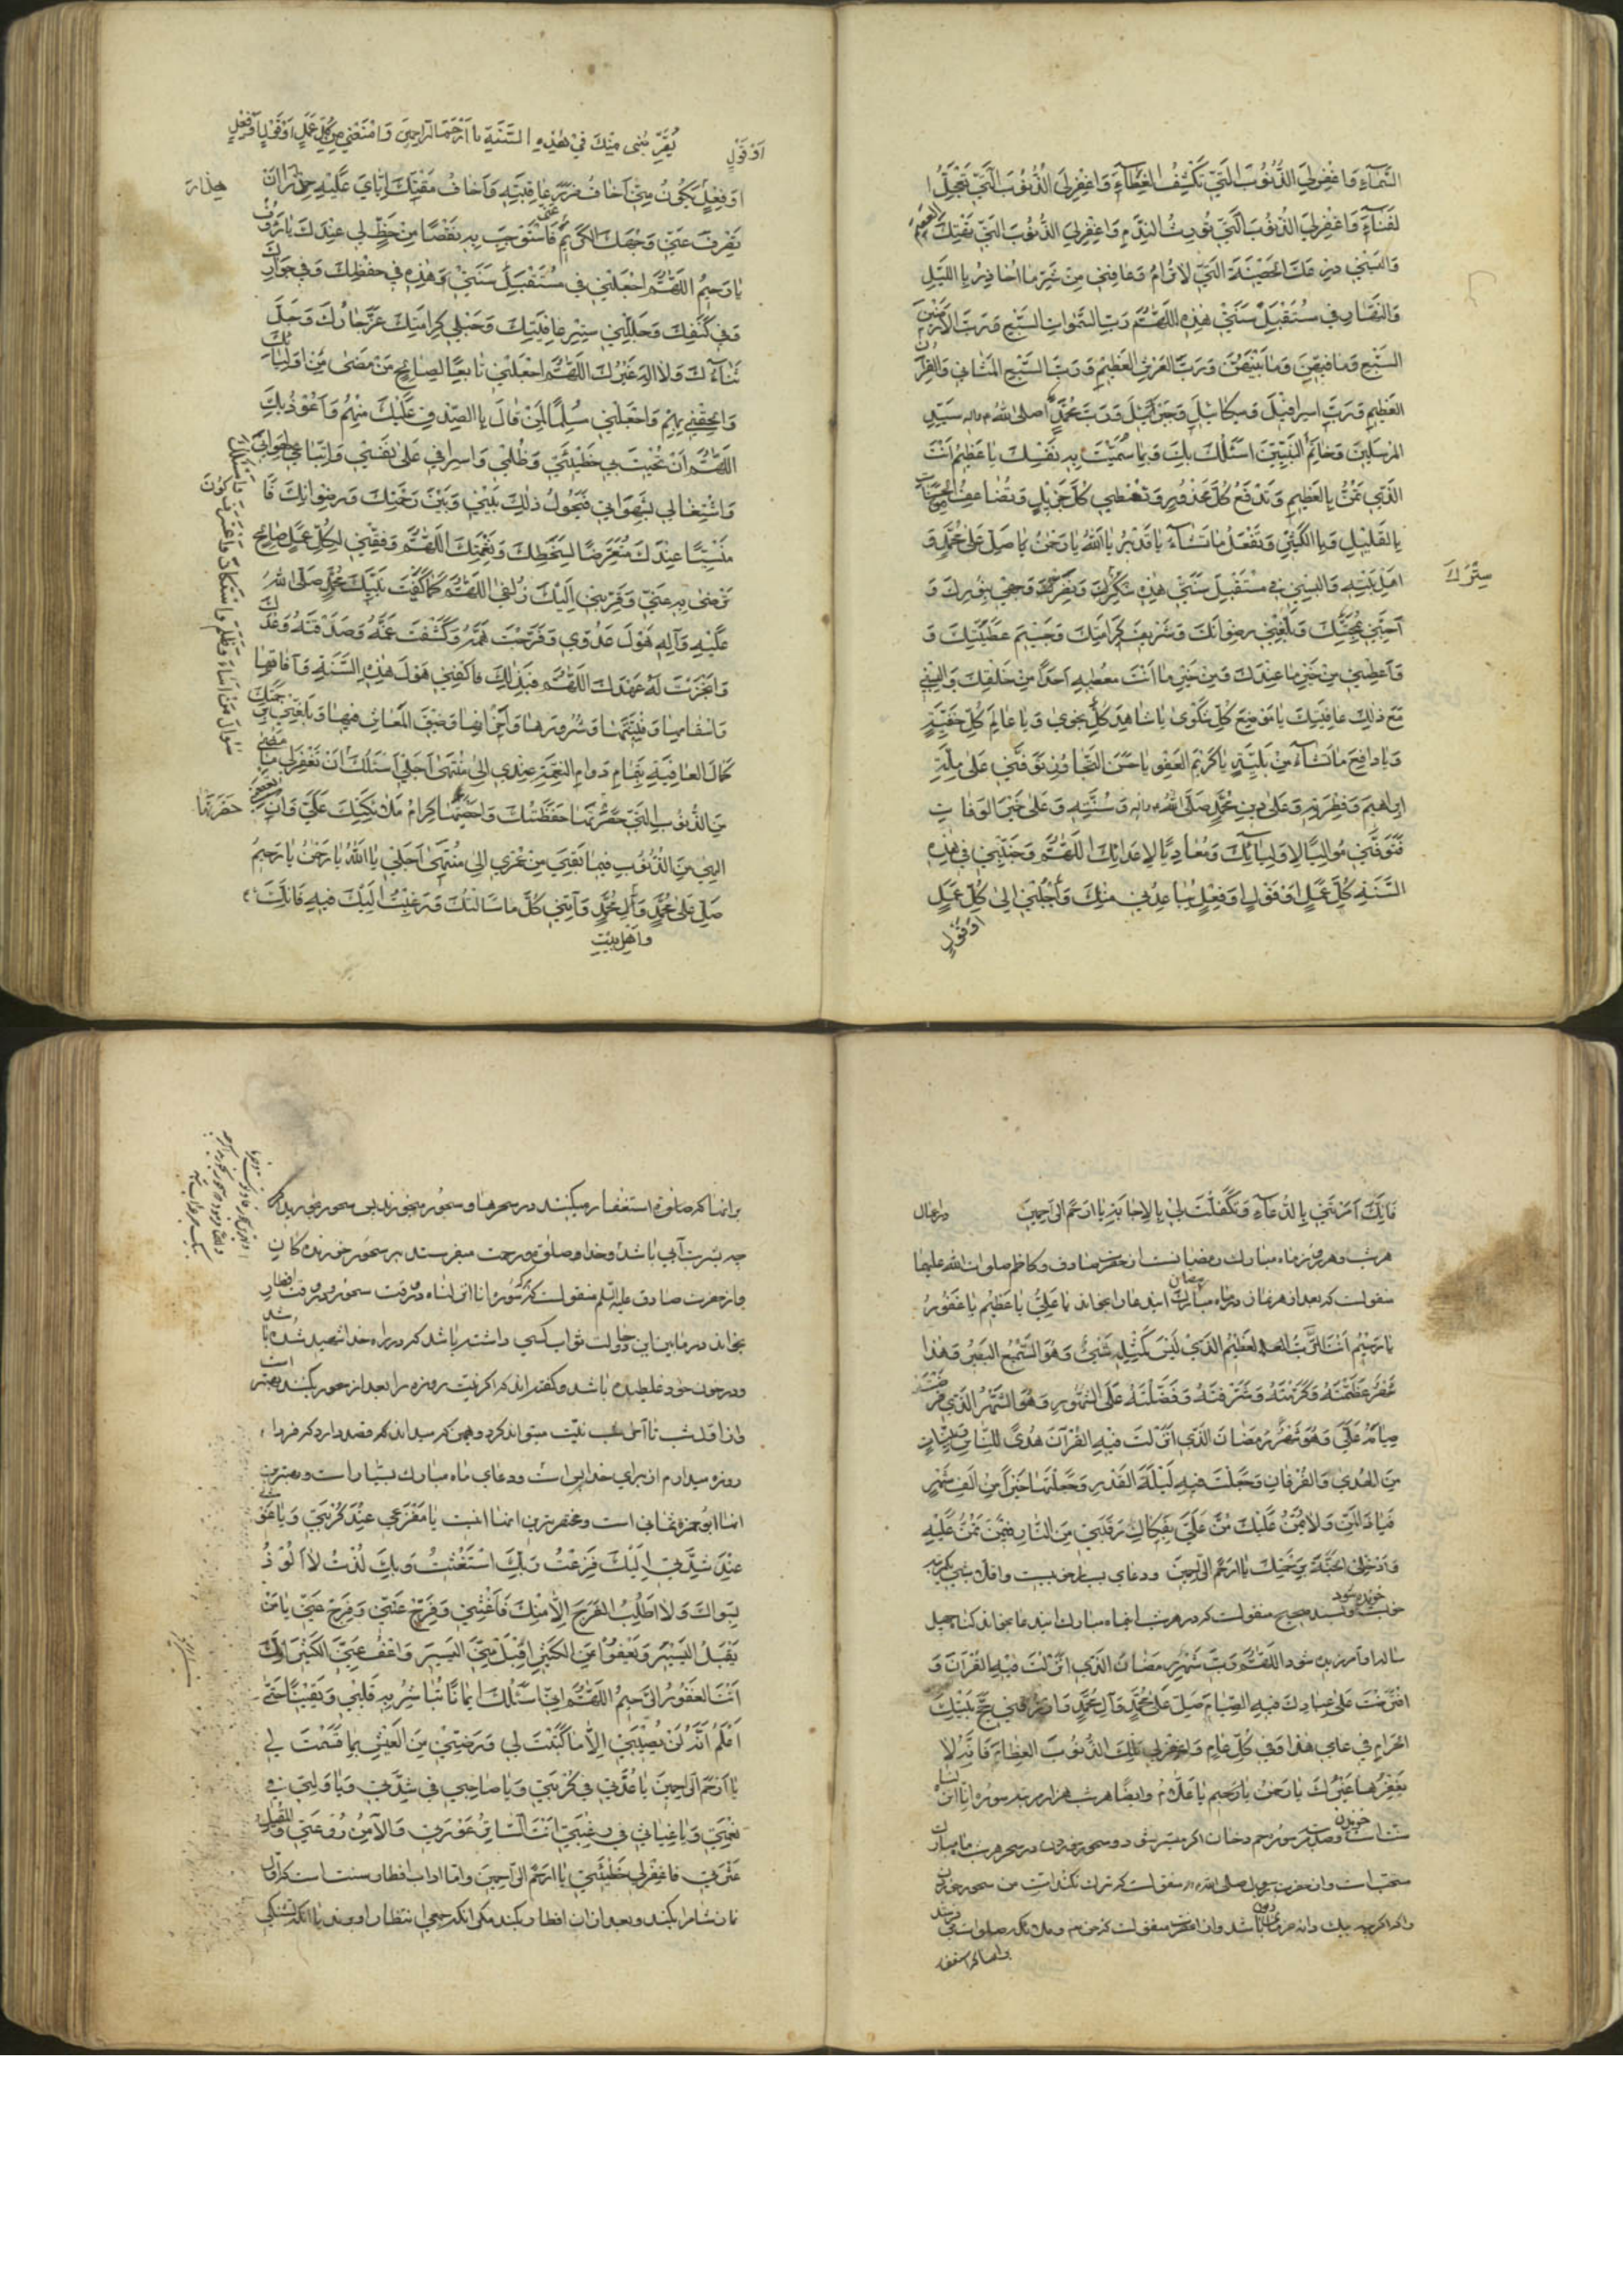 السَّمَآءِ وَاغْفِرْ لِيَ الذُّنُوبَ الَّتِي تَكْشِفُ الْغِطَآءَ وَاغْفِرْ لِيَ الذُّنُوبَ الَّتِي تُعَجِّلُ ا
لفَنَآءَ وَاغْفِرْ لِيَ الذُّنُوبَ الَّتِي تُورِثُ النَّدَمَ وَاغْفِرْ لِيَ الذُّنُوبَ الَّتِي تَهْتِكُ العِصَمَ
وَأَلْبِسْنِي دِرْعَكَ الْحَصِينَةَ الَّتِي لَا تُرَامُ وَعَافِنِي مِنْ شَرِّ مَا أُحَاذِرُ بِاللَّيْلِ
وَالنَّهَارِ فِي مُسْتَقْبَلِ سَنَتِي هٰذِهِ اللَّهُمَّ رَبَّ السَّمٰوَاتِ السَّبْعِ وَرَبَّ الْأَرَضِينَ
السَّبْعِ وَمَا فِيهِنَّ وَمَا بَيْنَهُنَّ وَرَبَّ الْعَرْشِ الْعَظِيمِ وَرَبَّ السَّبْعِ الْمَثَانِي وَالْقُرْآنِ
الْعَظِيمِ وَرَبَّ إِسْرَافِيلَ وَمِيكَائِيلَ وَجَبْرَئِيلَ وَرَبَّ مُحَمَّدٍ صلى الله عليه وآله سَيِّدِ
الْمُرْسَلِينَ وَخَاتَمِ النَّبِيِّينَ أَسْئَلُكَ بِكَ وَبِمَا سَمَّيْتَ بِهِ نَفْسَكَ يَا عَظِيمُ أَنْتَ
الَّذِي تَمُنُّ بِالْعَظِيمِ وَتَدْفَعُ كُلَّ مَحْذُورٍ وَتُعْطِي كُلَّ جَزِيلٍ وَتُضَاعِفُ الْحَسَنَاتِ
بِالْقَلِيلِ وَبِالْكَثِيرِ وَتَفْعَلُ مَا تَشَآءُ يَا قَدِيرُ يَا اللهُ يَا رَحْمٰنُ يَا صَلِّ عَلىٰ مُحَمَّدٍ وَ
أَهْلِ بَيْتِهِ وَأَلْبِسْنِي فِي مُسْتَقْبَلِ سَنَتِي هٰذِهِ سِتْرَكَ وَنَضِّرْ وَجْهِي بِنُورِكَ وَ
سِتْرَكَ
أَحِبَّنِي بِمَحَبَّتِكَ وَبَلِّغْنِي رِضْوَانَكَ وَشَرِيفَ كَرَامَتِكَ وَجَسِيمَ عَطِيَّتِكَ وَ
وَأَعْطِنِي مِنْ خَيْرِ مَا عِنْدَكَ وَمِنْ خَيْرِ مَا أَنْتَ مُعْطِيهِ أَحَدًا مِنْ خَلْقِكَ وَأَلْبِسْنِي
مَعَ ذٰلِكَ عَافِيَتَكَ يَا مَوْضِعَ كُلِّ شَكْوىٰ يَا شَاهِدَ كُلِّ نَجْوىٰ وَيَا عَالِمَ كُلِّ خَفِيَّةٍ
وَيَا دَافِعَ مَا تَشَآءُ مِنْ بَلِيَّةٍ يَا كَرِيمَ الْعَفْوِ يَا حَسَنَ التَّجَاوُزِ تَوَفَّنِي عَلىٰ مِلَّةِ
إِبْرَاهِيمَ وَفِطْرَتِهِ وَعَلىٰ دِينِ مُحَمَّدٍ صَلَّى الله عليه وآله وَسُنَّتِهِ وَعَلىٰ خَيْرِ الْوَفَاةِ
فَتَوَفَّنِي مُوَالِيًا لِأَوْلِيَآئِكَ وَمُعَادِيًا لِأَعْدَائِكَ اللَّهُمَّ وَجَنِّبْنِي فِي هٰذِهِ
السَّنَةِ كُلَّ عَمَلٍ أَوْ قَوْلٍ أَوْ فِعْلٍ يُبَاعِدُنِي مِنْكَ وَاجْلُبْنِي إِلىٰ كُلِّ عَمَلٍ
أَوْ قَوْلٍ
أَوْ قَوْلٍ
يُقَرِّبُنِي مِنْكَ فِي هٰذِهِ السَّنَةِ يَا أَرْحَمَ الرَّاحِمِينَ وَامْنَعْنِي مِنْ كُلِّ عَمَلٍ أَوْ قَوْلٍ أَوْ فِعْلٍ
أَوْ فِعْلٍ يَكُونُ مِنِّي أَخَافُ ضَرَرَ عَاقِبَتِهِ وَأَخَافُ مَقْتَكَ إِيَّايَ عَلَيْهِ حِذَارَ أَنْ
حِذَارَ
تَصْرِفَ عَنِّي وَجْهَكَ الْكَرِيمَ فَأَسْتَوْجِبَ بِهِ نَقْصًا مِنْ حَظٍّ لِي عِنْدَكَ يَا رَؤُفُ
يَا رَحِيمُ اللَّهُمَّ اجْعَلْنِي فِي مُسْتَقْبَلِ سَنَتِي هٰذِهِ فِي حِفْظِكَ وَفِي جِوَارِكَ
وَفِي كَنَفِكَ وَجَلِّلْنِي سِتْرَ عَافِيَتِكَ وَهَبْ لِي كَرَامَتَكَ عَزَّ جَارُكَ وَجَلَّ
ثَنَآءُكَ وَلَا إِلٰهَ غَيْرُكَ اللَّهُمَّ اجْعَلْنِي تَابِعًا لِصَالِحِ مَنْ مَضىٰ مِنْ أَوْلِيَائِكَ
وَأَلْحِقْنِي بِهِمْ وَاجْعَلْنِي مُسَلِّمًا لِمَنْ قَالَ بِالصِّدْقِ عَلَيْكَ مِنْهُمْ وَأَعُوذُ بِكَ
اللَّهُمَّ أَنْ تُحِيطَ بِي خَطِيئَتِي وَظُلْمِي وَإِسْرَافِي عَلىٰ نَفْسِي وَاتِّبَاعِي لِهَوَايَ
وَاشْتِغَالِي بِشَهَوَاتِي فَيَحُولُ ذٰلِكَ بَيْنِي وَبَيْنَ رَحْمَتِكَ وَرِضْوَانِكَ فَأَكُونَ
مَنْسِيًّا عِنْدَكَ مُتَعَرِّضًا لِسَخَطِكَ وَنِقْمَتِكَ اللَّهُمَّ وَفِّقْنِي لِكُلِّ عَمَلٍ صَالِحٍ
تَرْضىٰ بِهِ عَنِّي وَقَرِّبْنِي إِلَيْكَ زُلْفىٰ اللَّهُمَّ كَمَا كَفَيْتَ نَبِيَّكَ مُحَمَّدًا صَلَّى اللهُ
عَلَيْهِ وَآلِهِ هَوْلَ عَدُوِّهِ وَفَرَّجْتَ هَمَّهُ وَكَشَفْتَ غَمَّهُ وَصَدَقْتَهُ وَعْدَكَ
وَأَنْجَزْتَ لَهُ عَهْدَكَ اللَّهُمَّ فَبِذٰلِكَ فَاكْفِنِي هَوْلَ هٰذِهِ السَّنَةِ وَآفَاتِهَا
وَأَسْقَامَهَا وَفِتْنَتَهَا وَشُرُورَهَا وَأَحْزَانَهَا وَضِيقَ الْمَعَاشِ فِيهَا وَبَلِّغْنِي بِرَحْمَتِكَ
كَمَالَ الْعَافِيَةِ بِتَمَامِ دَوَامِ النِّعْمَةِ عِنْدِي إِلىٰ مُنْتَهىٰ أَجَلِي أَسْئَلُكَ أَنْ تَغْفِرَ لِي مَا مَضىٰ
مِنَ الذُّنُوبِ الَّتِي حَصَرَتْهَا حَفَظَتُكَ وَأَحْصَتْهَا كِرَامُ مَلَائِكَتِكَ عَلَيَّ وَأَنْ تَعْصِمَنِي
إِلٰهِي مِنَ الذُّنُوبِ فِيمَا بَقِيَ مِنْ عُمْرِي إِلىٰ مُنْتَهىٰ أَجَلِي يَا اللهُ يَا رَحْمٰنُ يَا رَحِيمُ
صَلِّ عَلىٰ مُحَمَّدٍ وَآلِ مُحَمَّدٍ وَآتِنِي كُلَّ مَا سَأَلْتُكَ وَرَغِبْتُ إِلَيْكَ فِيهِ فَإِنَّكَ
وأهل بيت
فَإِنَّكَ أَمَرْتَنِي بِالدُّعَآءِ وَتَكَفَّلْتَ لِي بِالْإِجَابَةِ يَا أَرْحَمَ الرَّاحِمِينَ
هر شب وهر روز ماه مبارك رمضانست از حضرت صادق وكاظم صلوات الله عليهما
منقولست كه بعد از هر نماز در ماه مبارك رمضان ايندعا را بخواند يَا عَلِيُّ يَا عَظِيمُ يَا غَفُورُ
يَا رَحِيمُ أَنْتَ الرَّبُّ الْعَظِيمُ الَّذِي لَيْسَ كَمِثْلِهِ شَيْءٌ وَهُوَ السَّمِيعُ الْبَصِيرُ وَهٰذَا
شَهْرٌ عَظَّمْتَهُ وَكَرَّمْتَهُ وَشَرَّفْتَهُ وَفَضَّلْتَهُ عَلَى الشُّهُورِ وَهُوَ الشَّهْرُ الَّذِي فَرَضْتَ
صِيَامَهُ عَلَيَّ وَهُوَ شَهْرُ رَمَضَانَ الَّذِي أَنْزَلْتَ فِيهِ الْقُرْآنَ هُدًى لِلنَّاسِ وَبَيِّنَاتٍ
مِنَ الْهُدىٰ وَالْفُرْقَانِ وَجَعَلْتَ فِيهِ لَيْلَةَ الْقَدْرِ وَجَعَلْتَهَا خَيْرًا مِنْ أَلْفِ شَهْرٍ
فَيَا ذَا الْمَنِّ وَلَا يُمَنُّ عَلَيْكَ مُنَّ عَلَيَّ بِفَكَاكِ رَقَبَتِي مِنَ النَّارِ فِيمَنْ تَمُنُّ عَلَيْهِ
وَأَدْخِلْنِي الْجَنَّةَ بِرَحْمَتِكَ يَا أَرْحَمَ الرَّاحِمِينَ
صحيح منقولست كه در هر شب اين ماه مبارك ايندعا بخواند كناه چهل
ساله او آمرزيده شود اللَّهُمَّ رَبَّ شَهْرِ رَمَضَانَ الَّذِي أَنْزَلْتَ فِيهِ الْقُرْآنَ وَ
افْتَرَضْتَ عَلىٰ عِبَادِكَ فِيهِ الصِّيَامَ صَلِّ عَلىٰ مُحَمَّدٍ وَآلِ مُحَمَّدٍ وَارْزُقْنِي حَجَّ بَيْتِكَ
الْحَرَامِ فِي عَامِي هٰذَا وَفِي كُلِّ عَامٍ وَاغْفِرْ لِي تِلْكَ الذُّنُوبَ الْعِظَامَ فَإِنَّهُ لَا
يَغْفِرُهَا غَيْرُكَ يَا رَحْمٰنُ يَا رَحِيمُ يَا عَلَّامُ وايضا هر شب هزار مرتبه سوره انا انزلناه
سنت است وصد مرتبه سوره حم دخان اكر ميسر شود وسحور خوردن در سحر هر شب ماه مبارك
مستحب است واز حضرت رسول صلى الله عليه وآله منقولست كه ترك نكنند امت من سحور خوردن
بدانها كه صلوات و استغفار ميكنند در سحرها وسحور ميخورند
چه بشربت آبى باشد وخدا وملائكه رحمت ميفرستند بر سحور خورندكان
واز حضرت صادق عليه السلم منقولست كه هر كه سوره انا انزلناه در وقت سحور ودر وقت افطار
بخواند در ما بين اين دو وقت ثواب كسى داشته باشد كه در راه خدا شهيد شده باشد
ودر خون خود غلطيده باشد وكفته اند كه اكر نيت روزه را بعد از سحور بكنند بهتر است
واز اول شب تا آخر شب نيت ميتواند كرد وهمين كه ميداند كه قصد دارد كه فردا
روزه ميدارم از براى خدا بس است ودعاى ماه مبارك بسيار است وبهترين
انها ابو حمزه ثمالى است ومختصرترين انها اينست يَا مَفْزَعِي عِنْدَ كُرْبَتِي وَيَا غَوْثِي
عِنْدَ شِدَّتِي إِلَيْكَ فَزِعْتُ وَبِكَ اسْتَغَثْتُ وَبِكَ لُذْتُ لَا أَلُوذُ
بِسِوَاكَ وَلَا أَطْلُبُ الْفَرَجَ إِلَّا مِنْكَ فَأَغِثْنِي وَفَرِّجْ عَنِّي يَا مَنْ
يَقْبَلُ الْيَسِيرَ وَيَعْفُو عَنِ الْكَثِيرِ اقْبَلْ مِنِّي الْيَسِيرَ وَاعْفُ عَنِّي الْكَثِيرَ إِنَّكَ
أَنْتَ الْغَفُورُ الرَّحِيمُ اللَّهُمَّ إِنِّي أَسْئَلُكَ إِيمَانًا تُبَاشِرُ بِهِ قَلْبِي وَيَقِينًا حَتّىٰ
أَعْلَمَ أَنَّهُ لَنْ يُصِيبَنِي إِلَّا مَا كَتَبْتَ لِي وَرَضِّنِي مِنَ الْعَيْشِ بِمَا قَسَمْتَ لِي
يَا أَرْحَمَ الرَّاحِمِينَ يَا عُدَّتِي فِي كُرْبَتِي وَيَا صَاحِبِي فِي شِدَّتِي وَيَا وَلِيِّي فِي
نِعْمَتِي وَيَا غِيَاثِي فِي رَغْبَتِي أَنْتَ السَّاتِرُ عَوْرَتِي وَالْآمِنُ رَوْعَتِي وَالْمُقِيلُ
عَثْرَتِي فَاغْفِرْ لِي خَطِيئَتِي يَا أَرْحَمَ الرَّاحِمِينَ واما اداب افطار سنت است كه اول
نماز شام را بكند وبعد از ان افطار بكند مكر انكه جمعى انتظار او برند يا انكه تشنكى